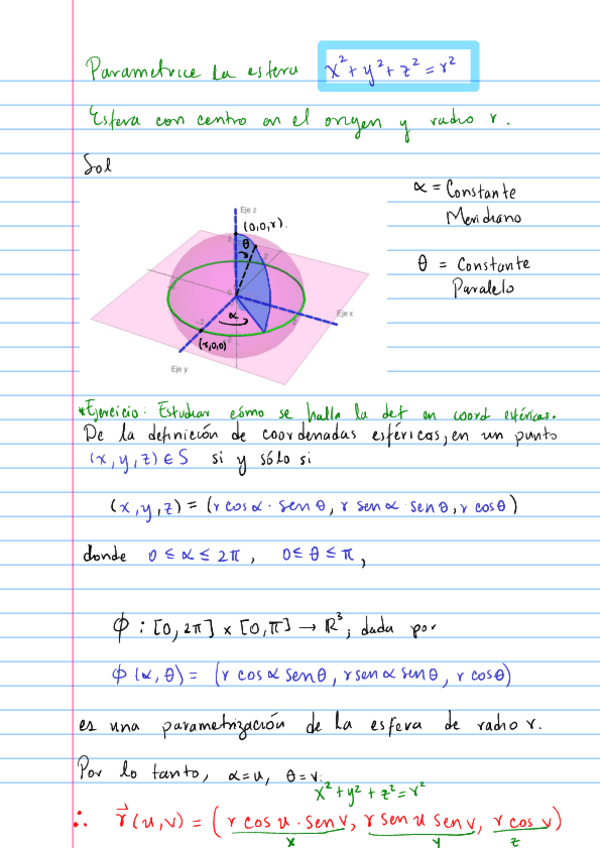 Parametrice la esfera x² + y² + z² = r²
Esfera con centro en el origen y radio r.
Sol
α = Constante
Meridiano
θ = Constante
Paralelo
Eje z
(0,0,r).
θ
2
2
0
α
Eje x
-2
(r,0,0)
-2
Eje y
*Ejercicio: Estudiar cómo se halla la def en coord esféricas.
De la definición de coordenadas esféricas, en un punto
(x, y, z) ∈ S si y sólo si
(x, y, z) = (r cos α · sen θ, r sen α sen θ, r cos θ)
donde 0 ≤ α ≤ 2π, 0 ≤ θ ≤ π,
ϕ : [0, 2π] x [0, π] → ℝ³; dada por
ϕ(α, θ) = (r cos α sen θ, r sen α sen θ, r cos θ)
es una parametrización de la esfera de radio r.
Por lo tanto, α = u, θ = v.
x² + y² + z² = r²
∴ r⃗(u, v) = (r cos u · sen v, r sen u sen v, r cos v)
x y z